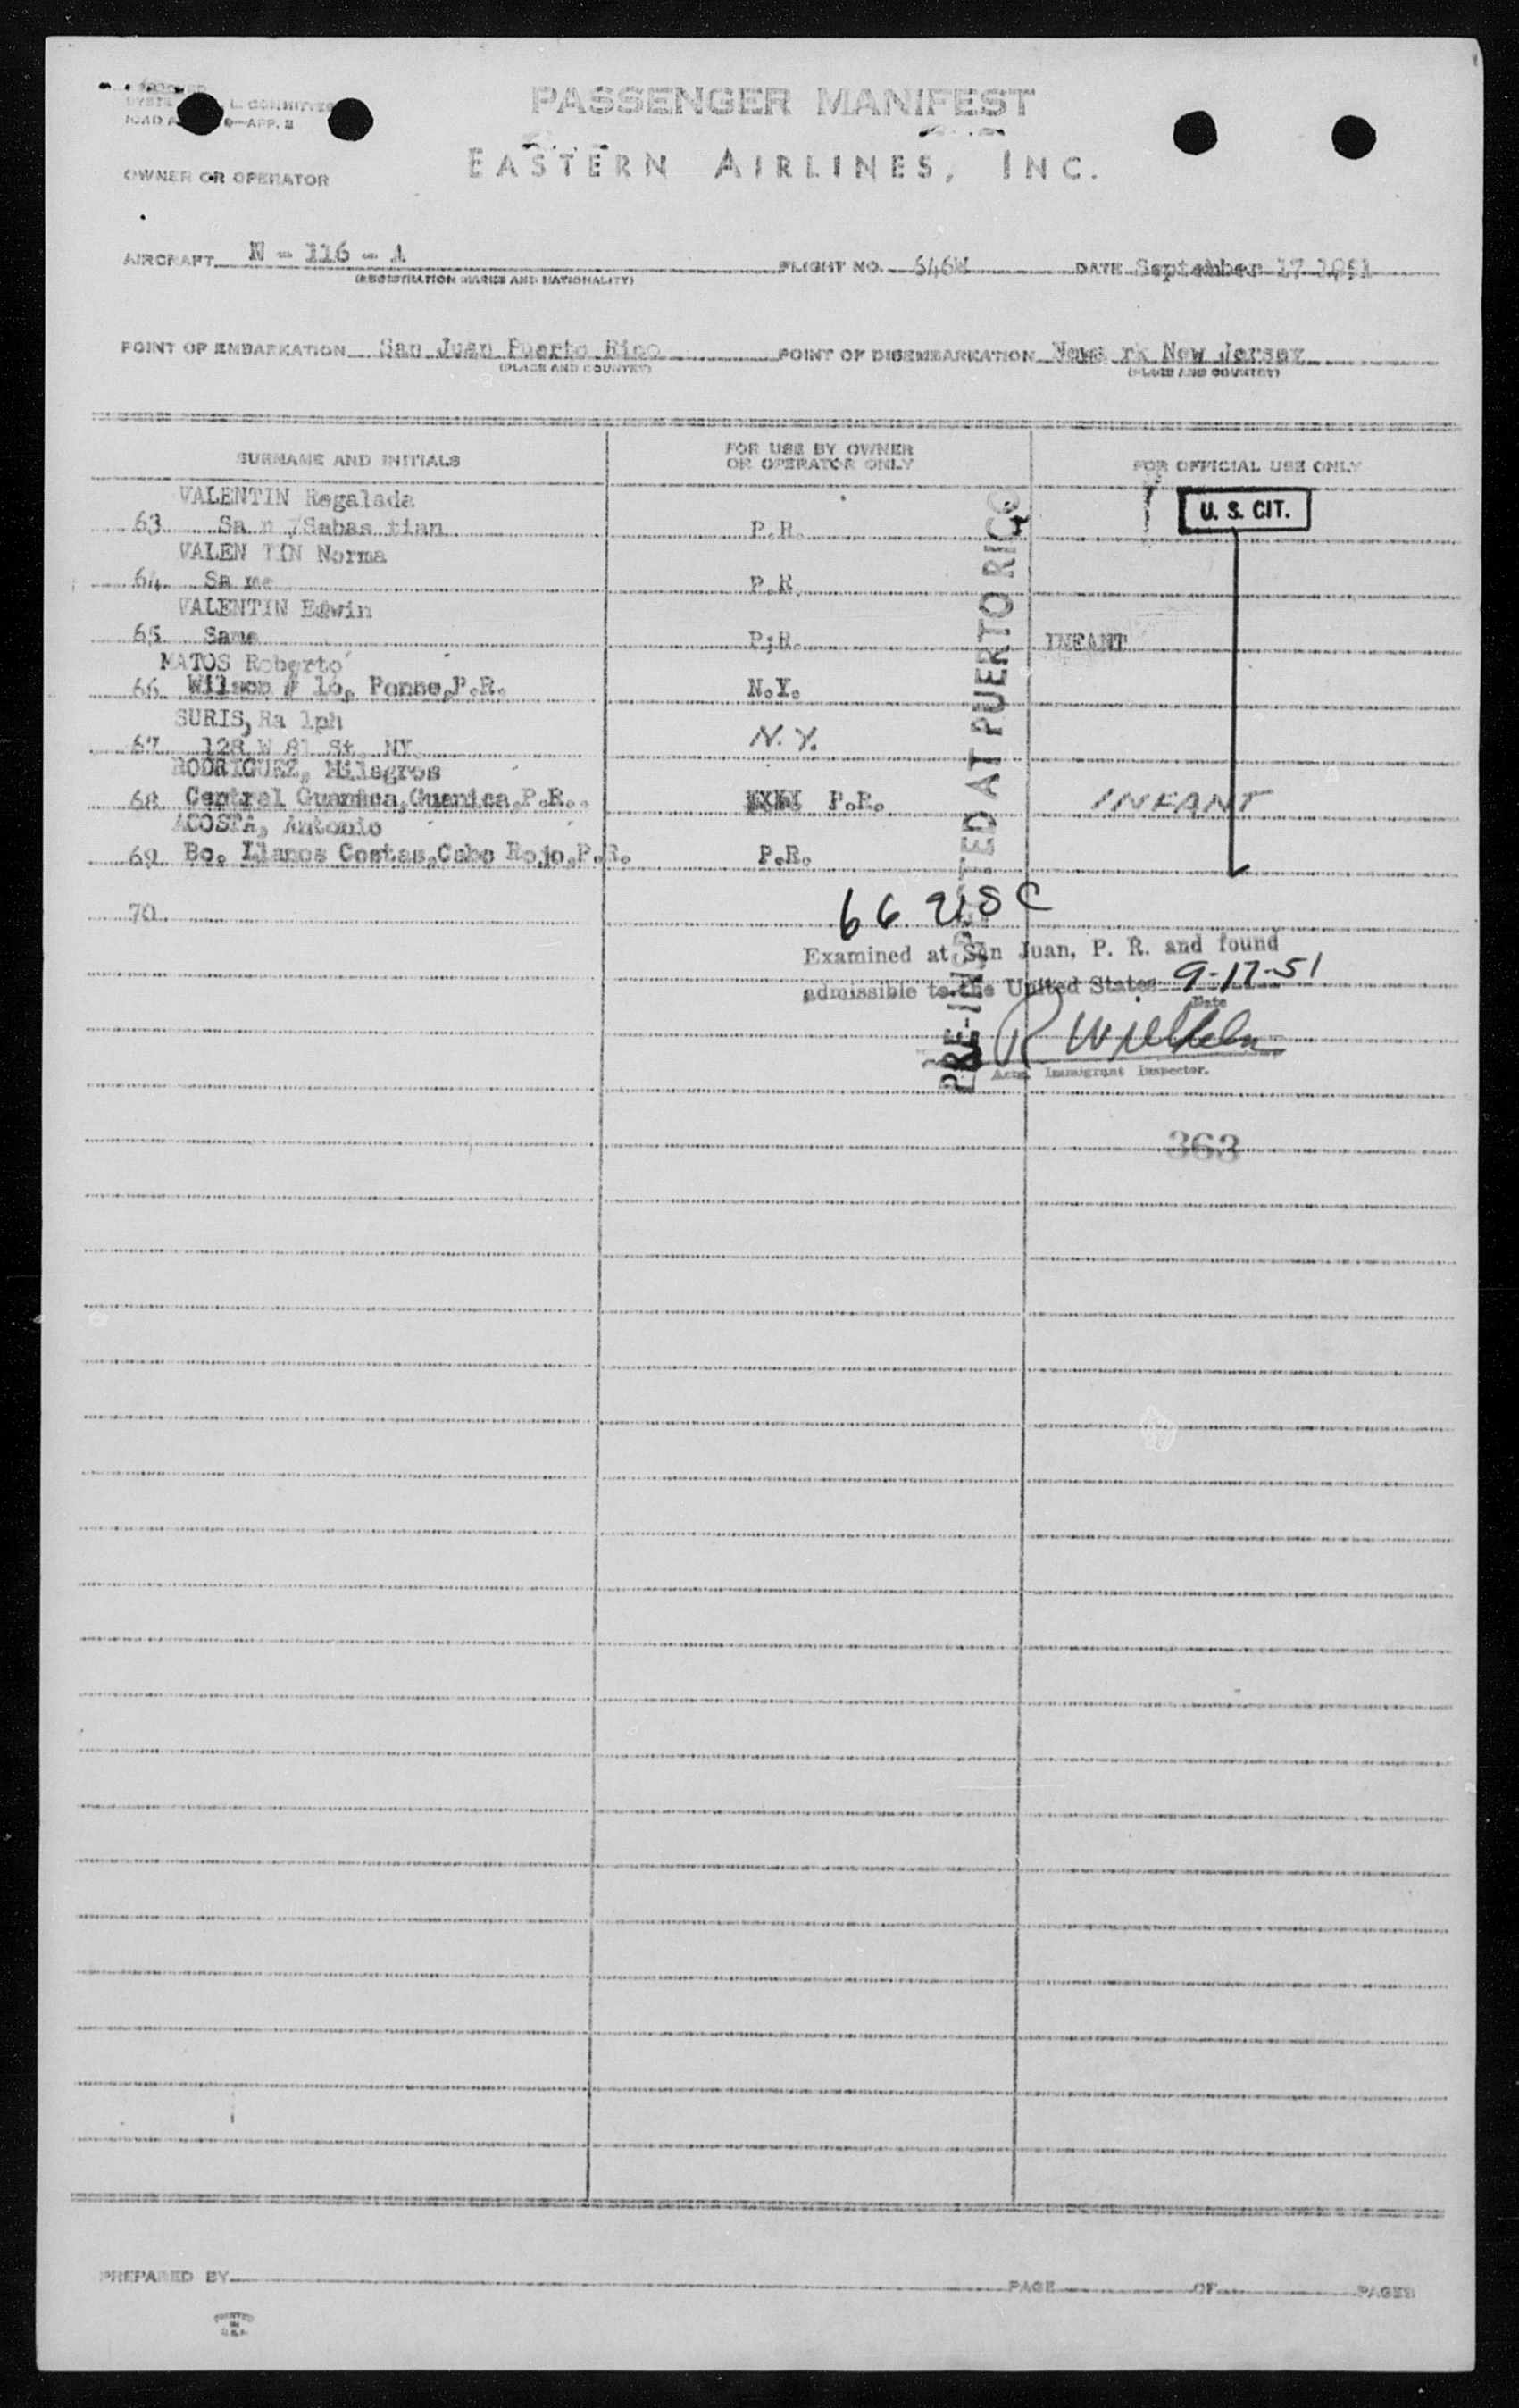 PASSENGER MANIFEST
EASTERN AIRLINES, INC.
OWNER OR OPERATOR
AIRCRAFT N - 116 - A FLIGHT NO. 546W DATE September 17 1951
(REGISTRATION MARKS AND NATIONALITY)
POINT OF EMBARKATION San Juan Puerto Rico POINT OF DISEMBARKATION Newa rk New Jersey
(PLACE AND COUNTRY) (PLACE AND COUNTRY)
SURNAME AND INITIALS FOR USE BY OWNER OR OPERATOR ONLY FOR OFFICIAL USE ONLY
VALENTIN Regalada
63 Sa n /Sabas tian P.R. U. S. CIT.
VALEN TIN Norma
64 Sa me P.R.
VALENTIN Edwin
65 Same P;R. INFANT
MATOS Roberto
66 Wilson # 16, Ponse,P.R. N.Y.
SURIS, Ra lph
67 128 W 81 St. NY N.Y.
RODRIGUEZ, Milagros
68 Central Guanica,Guanica,P.R.. P.R. INFANT
ACOSTA, Antonio
69 Bo. Llanos Costas,Cabo Rojo,P.R. P.R.
70
66 USC
PRE-INSPECTED AT PUERTO RICO
Examined at San Juan, P. R. and found
admissible to the United States 9-17-51
Date
R Wilhelm
Actg. Immigrant Inspector.
363
PREPARED BY PAGE OF PAGES
PRINTED
IN
U.S.A.